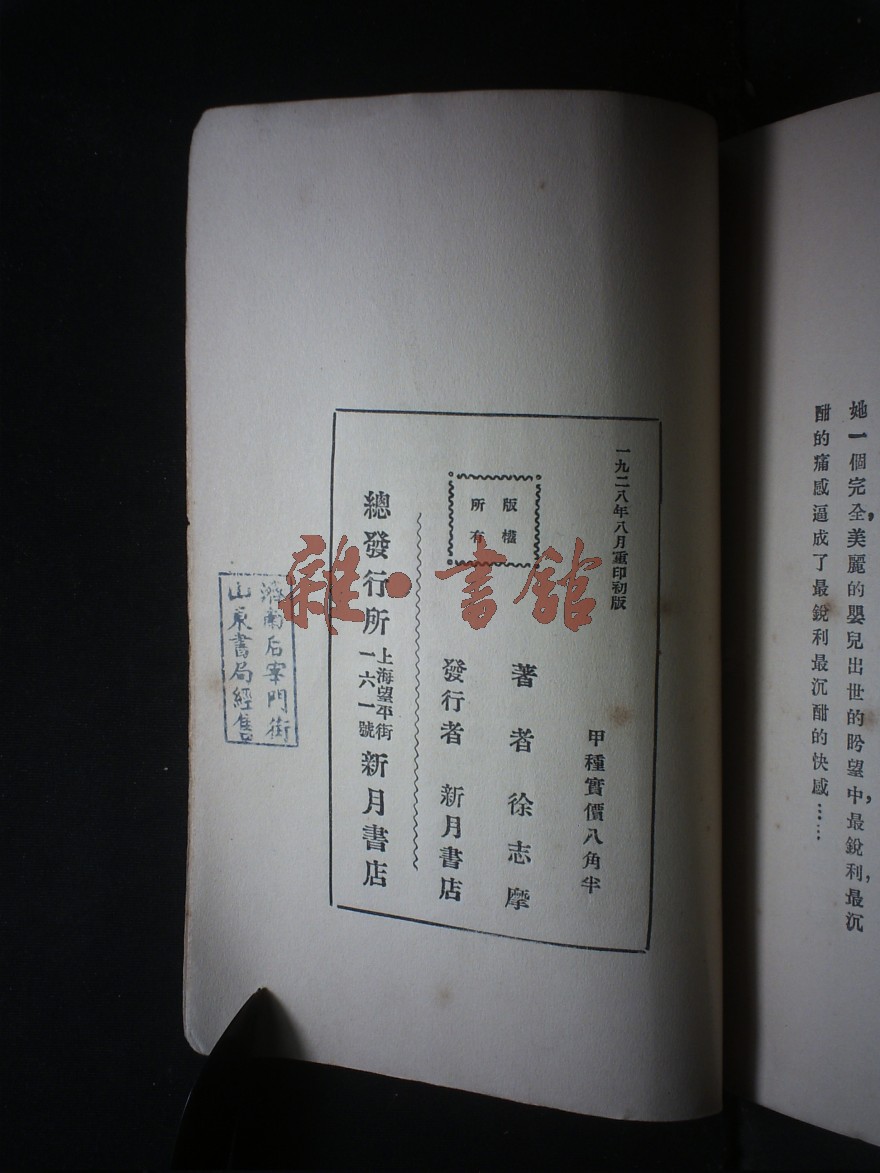 她一個完全美麗的嬰兒出世的盼望中，最銳利，最沉
酣的痛感逼成了最銳利最沉酣的快感……
一九二八年八月重印初版
甲種實價八角半
版權
所有
著者徐志摩
發行者 新月書店
總發行所 上海望平街
一六一號 新月書店
濟南后宰門街
山東書局經售
雜·書館